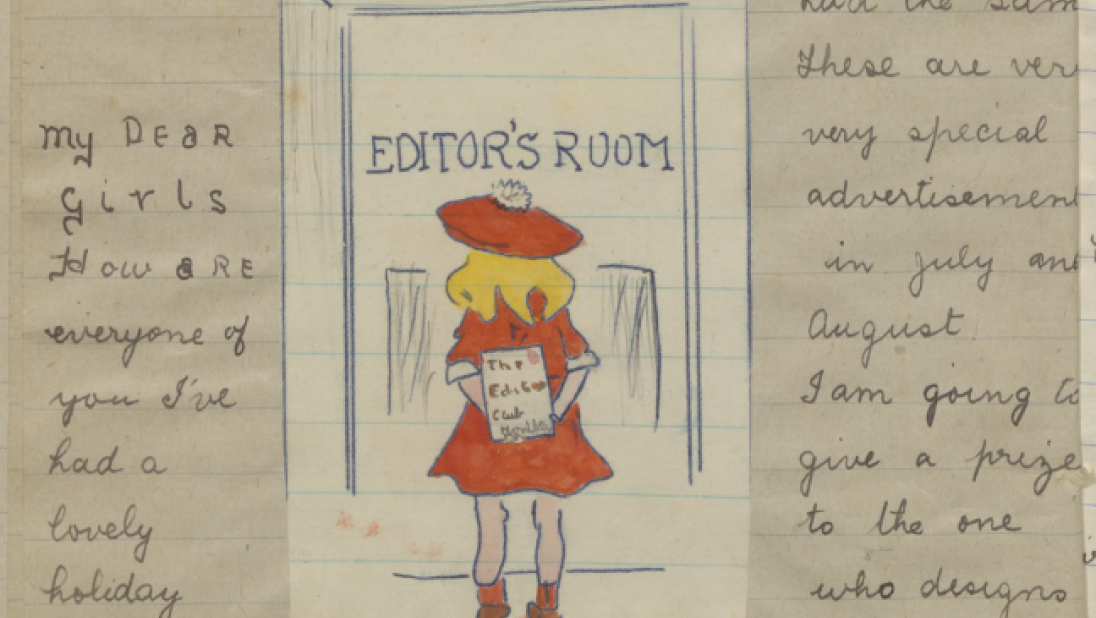 My DEaR
girls
How aRE
everyone of
you I've
had a
lovely
holiday
EDITOR'S ROOM
The
Editor
Club
had the sam
These are ver
very special
advertisemen
in july an
August
I am going to
give a prize
to the one
who designs